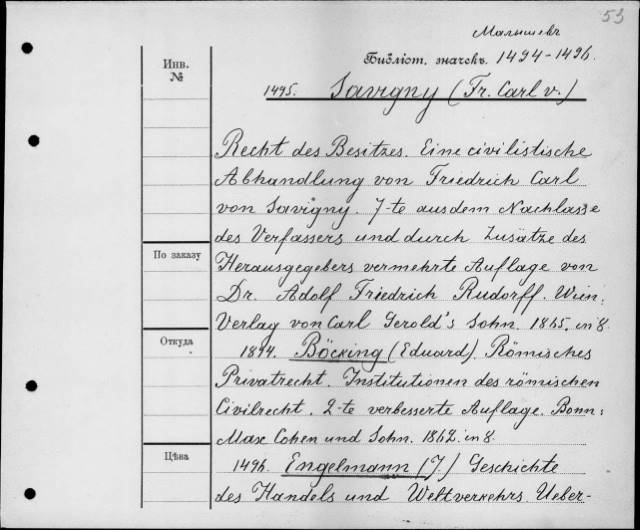 53
Малышевъ
Библіот. значекъ. 1494-1496.
Инв.
№
1495. Savigny (Fr. Carl v.)
Recht des Besitzes. Eine civilistische
Abhandlung von Friedrich Carl
von Savigny. 7-te aus dem Nachlasse
des Verfassers und durch Zusätze des
По заказу
Herausgegebers vermehrte Auflage von
Dr. Adolf Friedrich Rudorff. Wien:
Verlag von Carl Gerold's Sohn. 1865. in 8.
Откуда
1494. Böcking (Eduard). Römisches
Privatrecht. Institutionen des römischen
Civilrecht. 2-te verbesserte Auflage. Bonn:
Max Cohen und Sohn. 1862. in 8.
Цѣна
1496. Engelmann (J.) Geschichte
des Handels und Weltverkehrs. Ueber-